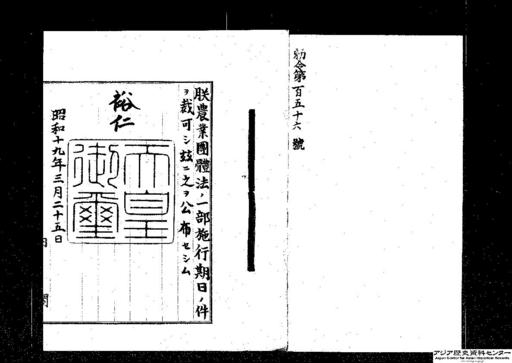 勅令第百五十六號
朕農業團體法ノ一部施行期日ノ件
ヲ裁可シ茲ニ之ヲ公布セシム
裕仁
天皇
御璽
昭和十九年三月二十五日
内閣
アジア歴史資料センター
Japan Center for Asian Historical Records